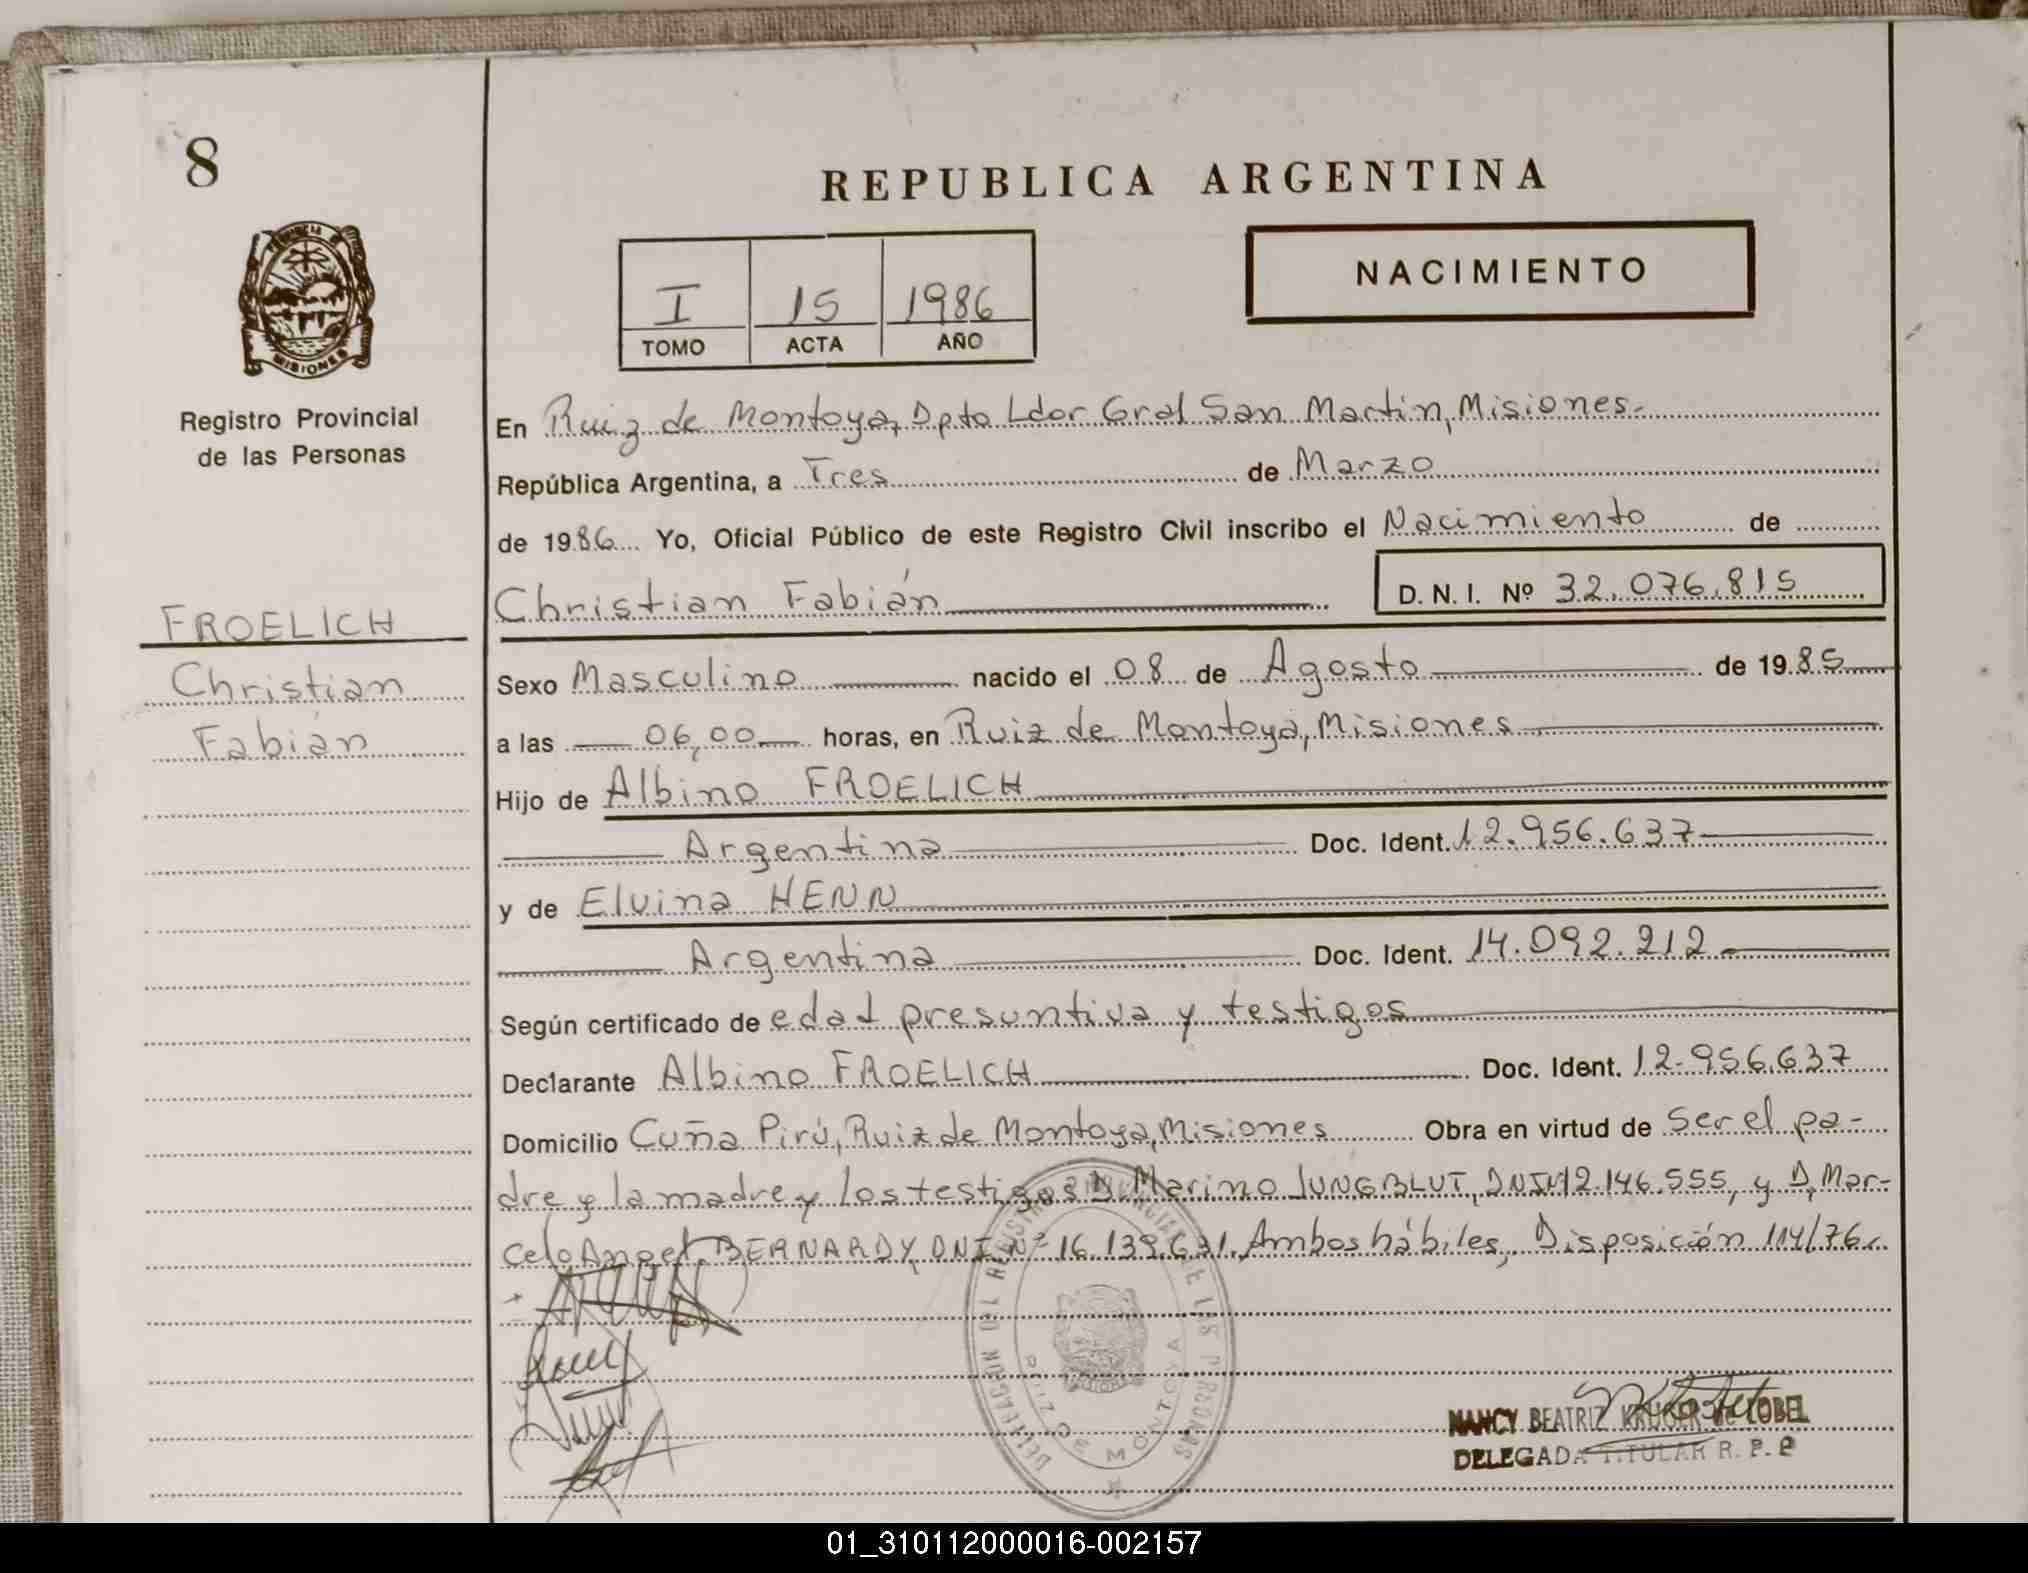 8
REPUBLICA ARGENTINA
NACIMIENTO
I 15 1986
TOMO ACTA AÑO
MISIONES
Registro Provincial
de las Personas
En Ruiz de Montoya, Dpto Ldor Gral San Martín, Misiones.
República Argentina, a Tres de Marzo
de 1986 Yo, Oficial Público de este Registro Civil inscribo el Nacimiento de
Christian Fabián D.N.I. Nº 32.076.815
FROELICH
Christian
Fabián
Sexo Masculino nacido el 08 de Agosto de 1985
a las 06,00 horas, en Ruiz de Montoya, Misiones
Hijo de Albino FROELICH
Argentina Doc. Ident. 12.956.637
y de Elvina HENN
Argentina Doc. Ident. 14.092.212
Según certificado de edad presuntiva y testigos
Declarante Albino FROELICH Doc. Ident. 12.956.637
Domicilio Cuña Pirú, Ruiz de Montoya, Misiones Obra en virtud de ser el pa-
dre y la madre y los testigos D. Marino JUNGBLUT, DNI Nº 12.146.555, y D. Mar-
celo Angel BERNARDY, DNI Nº 16.139.631, Ambos hábiles, Disposición 114/76.
DELEGACION DEL REGISTRO PROVINCIAL DE LAS PERSONAS
RUIZ DE MONTOYA
NANCY BEATRIZ KRUGER de LOBEL
DELEGADA TITULAR R. P. P
01_310112000016-002157